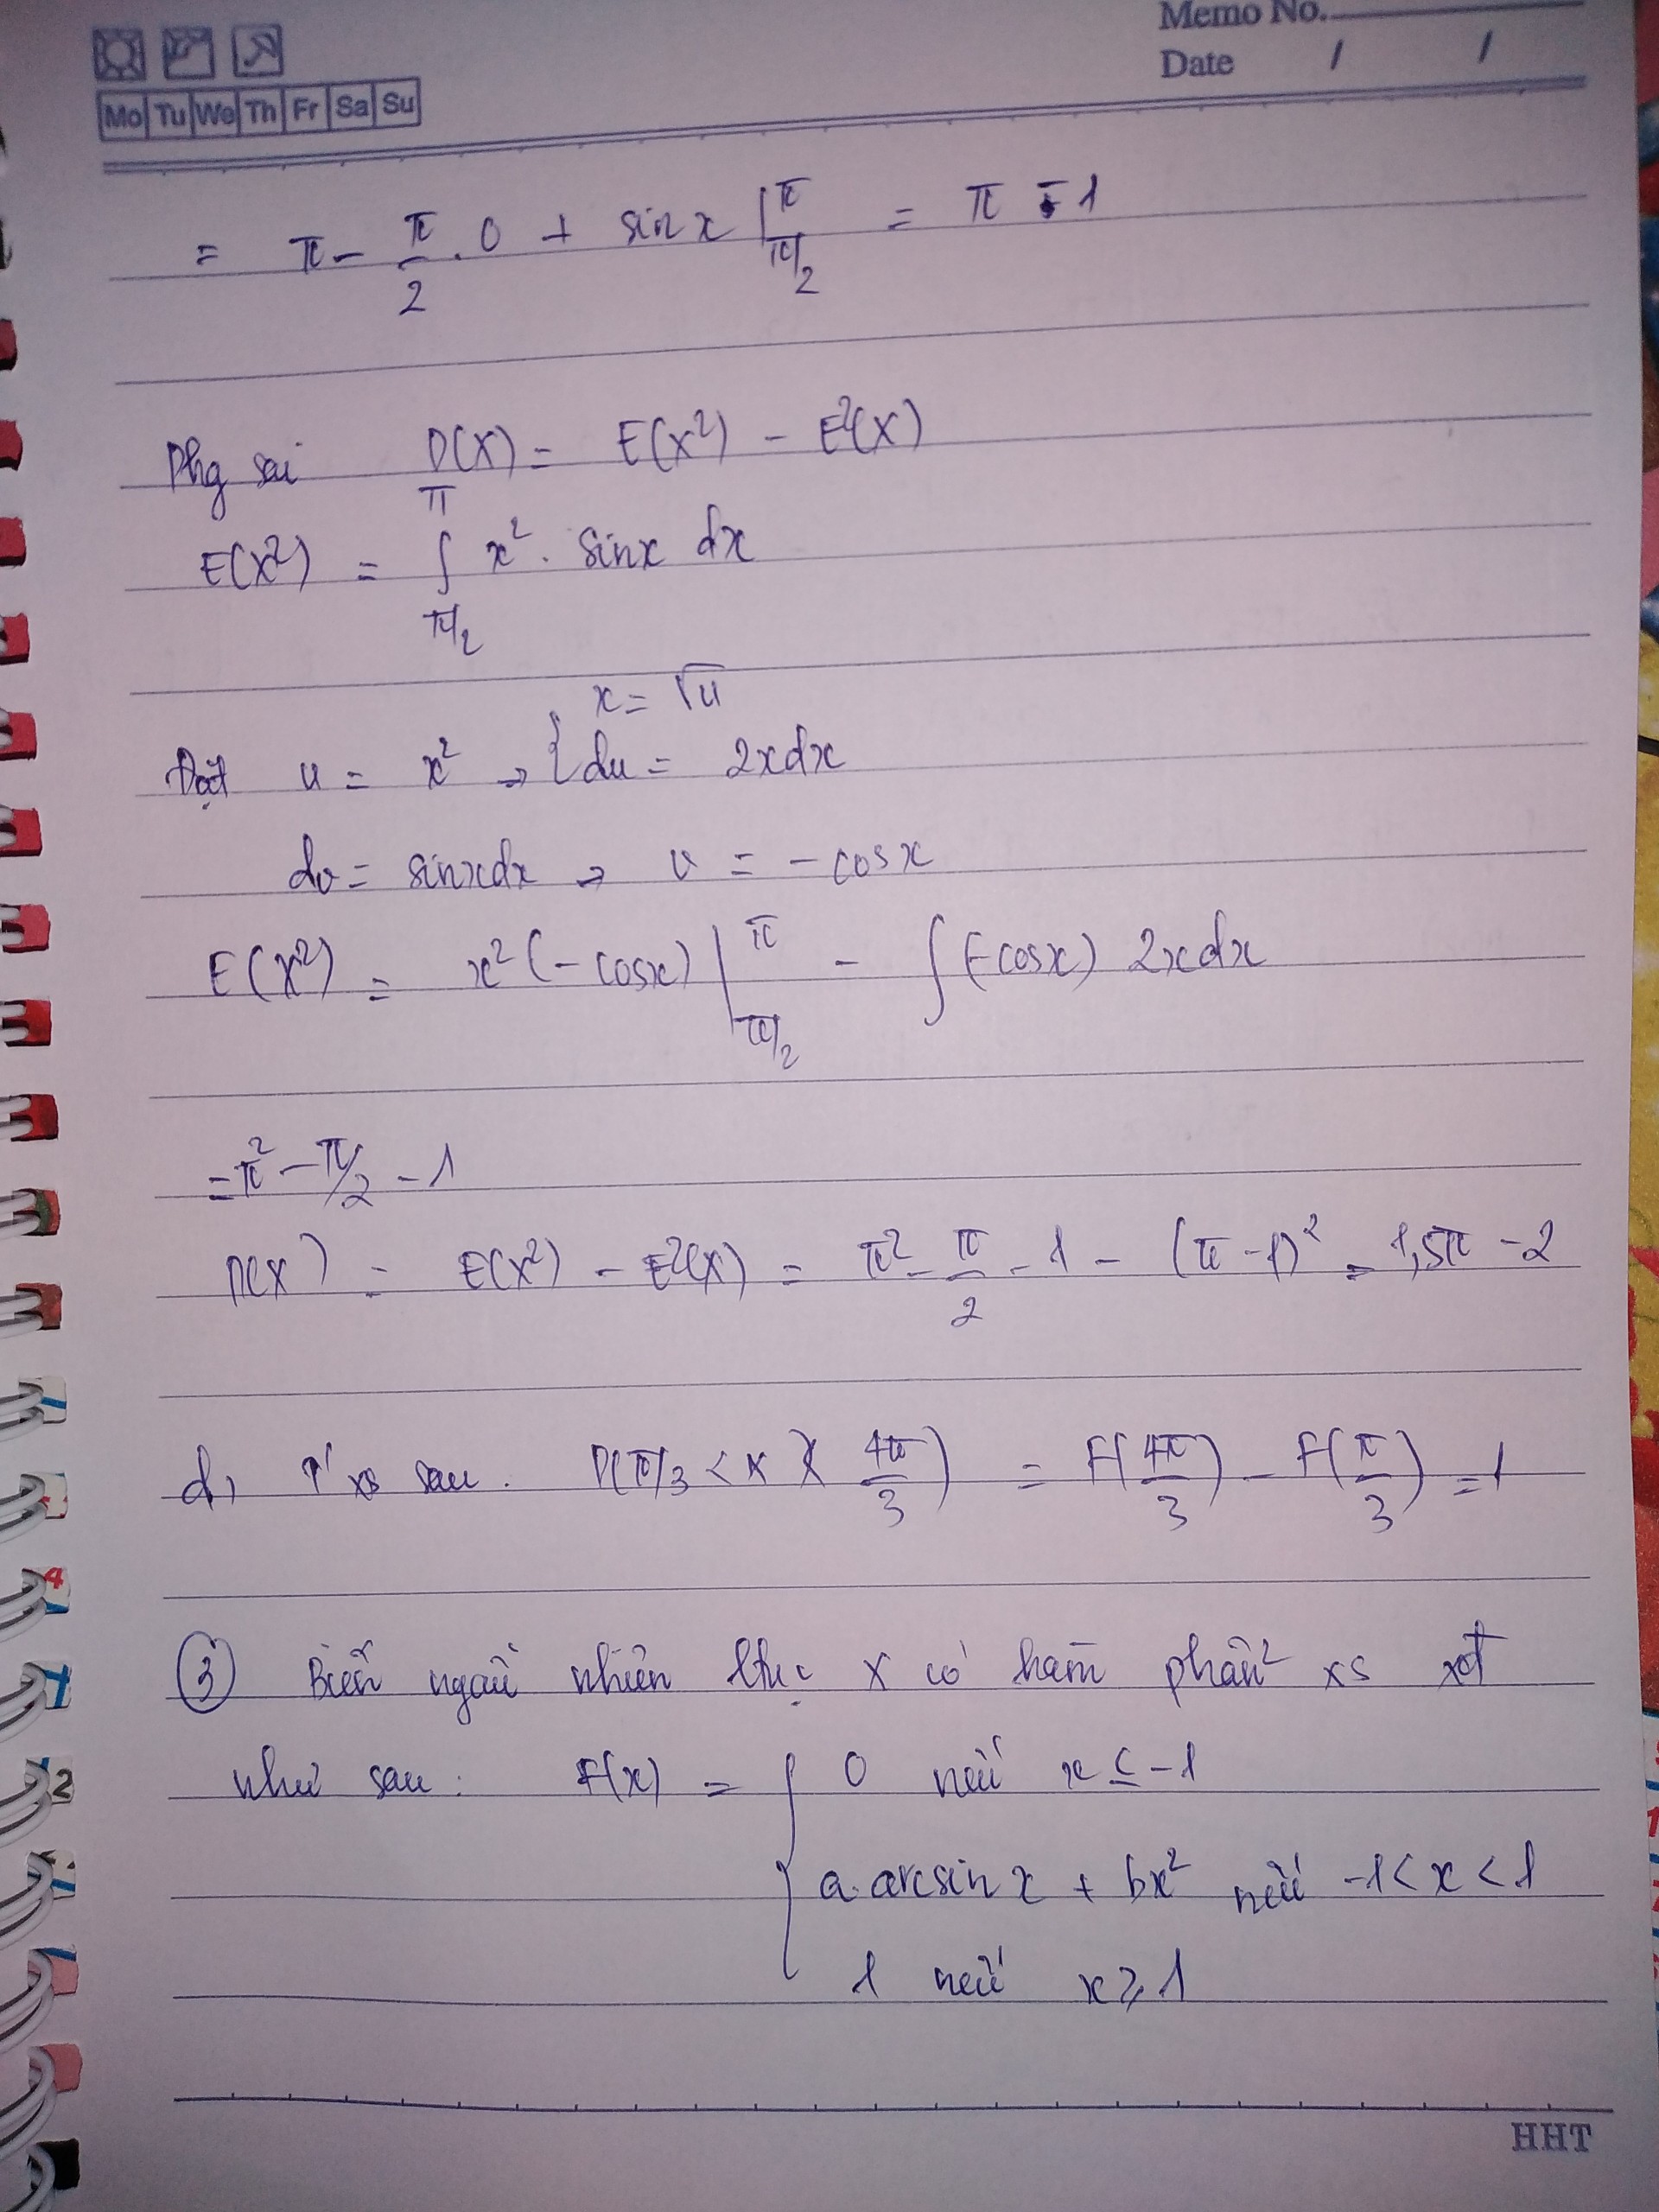 Memo No.
Date / /
Mo Tu We Th Fr Sa Su
= π - π/2 . 0 + sin x |π π/2 = π - 1
Phg sai D(X) = E(X²) - E²(X)
E(X²) = ∫ π π/2 x² . sinx dx
x = √u
Đặt u = x² → { du = 2xdx
dv = sinxdx → v = -cosx
E(X²) = x² (-cosx) |π π/2 - ∫ (-cosx) 2xdx
= π² - π/2 - 1
D(X) = E(X²) - E²(X) = π² - π/2 - 1 - (π - 1)² = 1,5π - 2
d, T' xs sau. P(π/3 < X < 4π/3) = F(4π/3) - F(π/3) = 1
③ Biến ngẫu nhiên ltục X có hàm phân² xs xđ
như sau : F(x) = { 0 nếu x ≤ -1
a.arcsin x + bx² nếu -1 < x < 1
1 nếu x ≥ 1
HHT